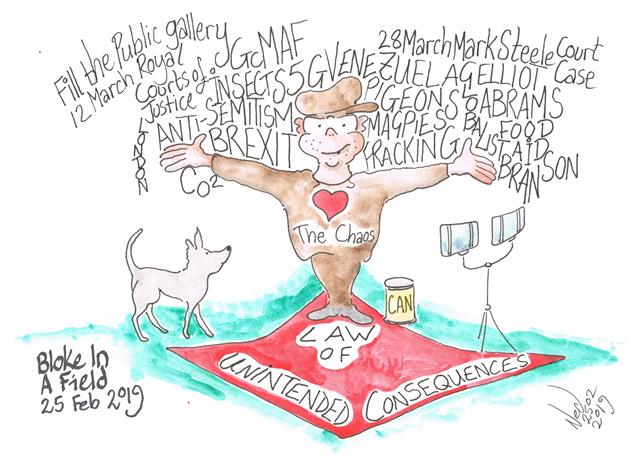 Fill the Public gallery
12 March Royal
Courts of
Justice
LONDON
GcMAF
INSECTS 5G VENEZUELA G ELLIOT
ANTI-SEMITISM
BREXIT
CO2
28 March Mark Steele Court
Case
PIGEONS
ABRAMS
MAGPIES
FOOD
FRACKING
AID
BRANSON
The Chaos
CAN
LAW
OF
UNINTENDED CONSEQUENCES
Bloke In
A Field
25 Feb 2019
2502
2019